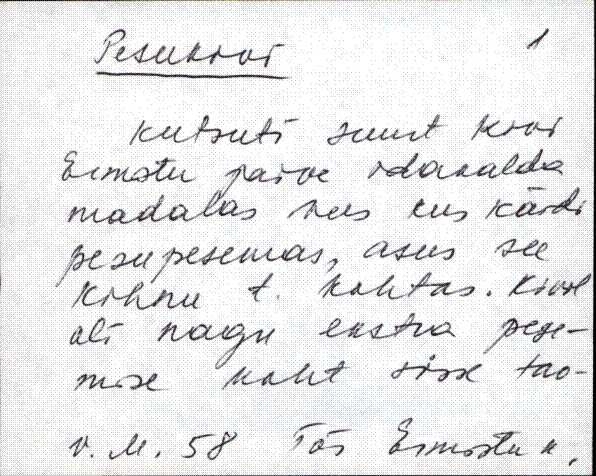 Pesukivi 1
kutsuti suurt kivi
Ermistu järve idakalda
madalas vees kus kärdi
pesupesemas, asus see
Kihnu t. kohtas. Kivil
oli nagu ekstra pese-
mise koht sisse tao-
V. M. 58 Tõs Ermistu k.